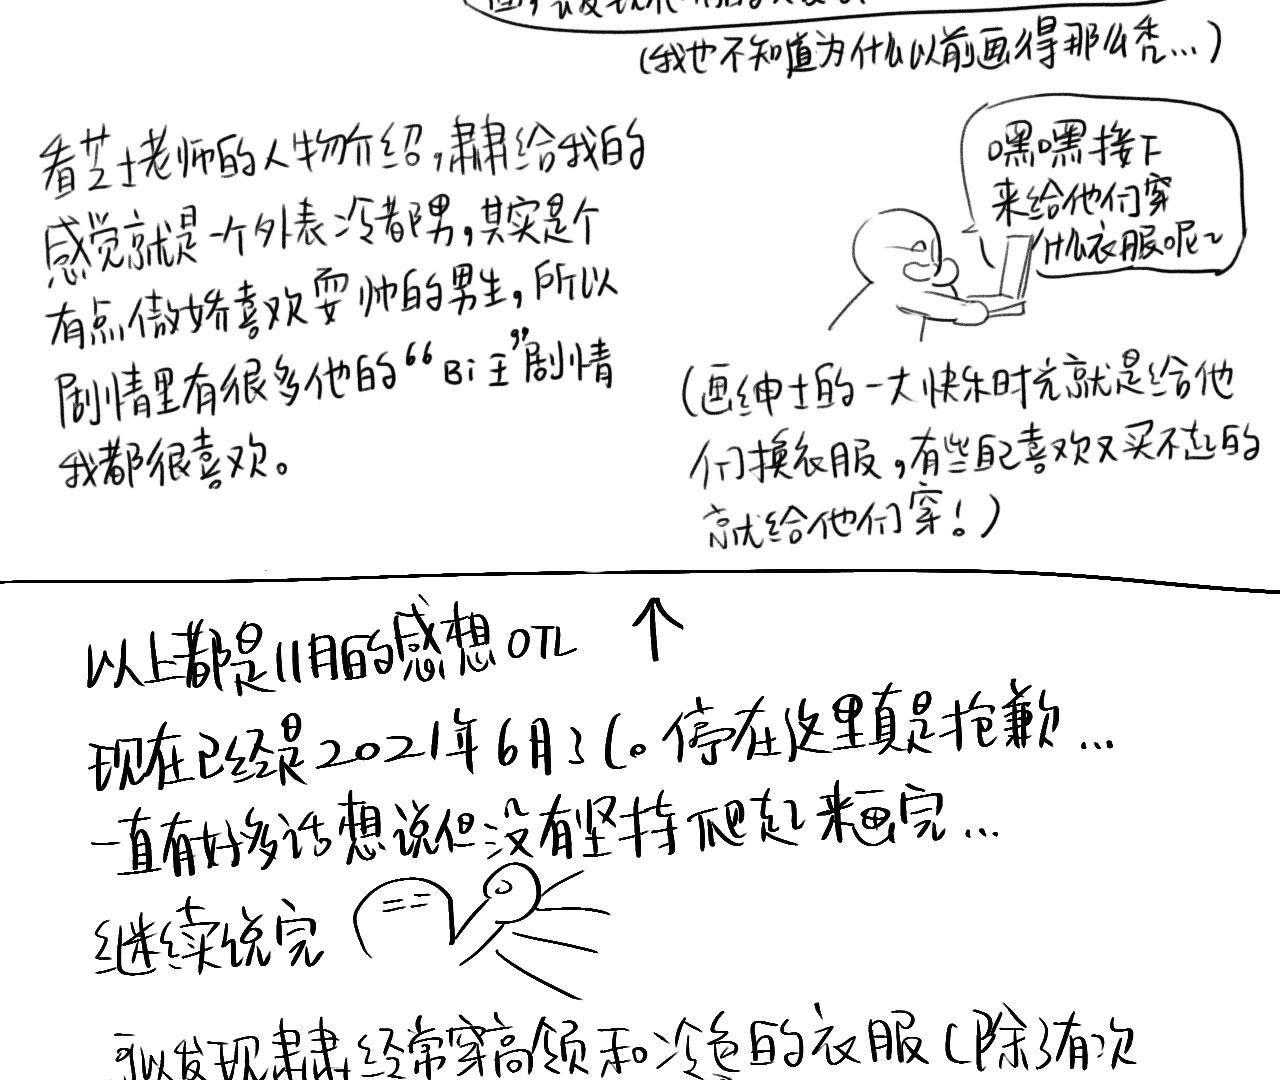 (我也不知道为什么以前画得那么秃...)
看芝士老师的人物介绍，肃给我的
感觉就是一个外表冷都男，其实是个
有点傲娇喜欢耍帅的男生，所以
剧情里有很多他的“Bi王”剧情
我都很喜欢。
嘿嘿接下
来给他们穿
什么衣服呢~
(画绅士的一大快乐时光就是给他
们换衣服，有些自己喜欢又买不起的
就给他们穿！)
以上都是11月的感想OTL ↑
现在已经是2021年6月3(。停在这里真是抱歉...
一直有好多话想说但没有坚持爬起来画完...
继续说完
可以发现肃经常穿高领和冷色的衣服(除了有次